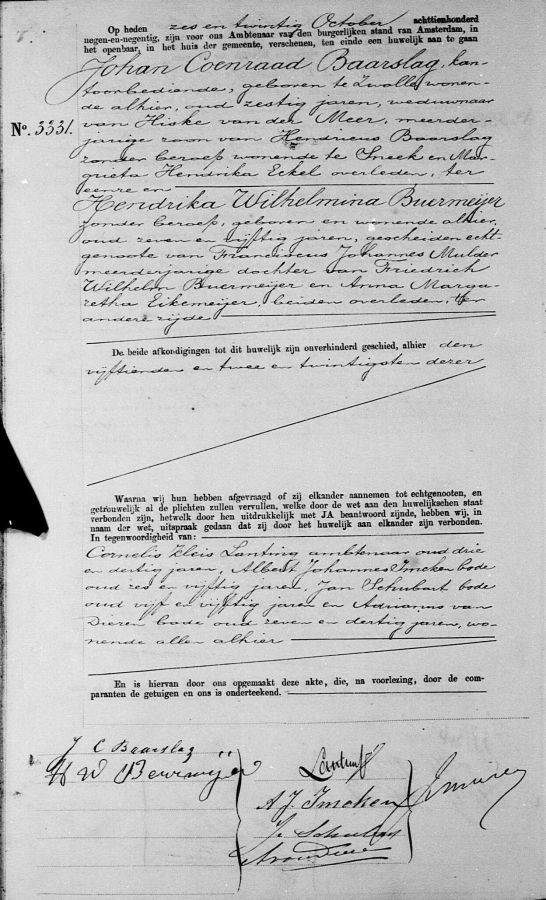 Op heden zes en twintig October achttienhonderd
negen-en-negentig, zijn voor ons Ambtenaar van den burgerlijken stand van Amsterdam, in
het openbaar, in het huis der gemeente, verschenen, ten einde een huwelijk aan te gaan
Johan Coenraad Baarslag, kan-
toorbediende, geboren te Zwolle wonen-
de alhier, oud zestig jaren, weduwnaar
No. 3331. van Hiske van der Meer, meerder-
jarige zoon van Hendricus Baarslag
zonder beroep wonende te Sneek en Mar-
greta Hendrika Eckel overleden, ter
eenre en
Hendrika Wilhelmina Buermeijer
zonder beroep, geboren en wonende alhier,
oud zeven en vijftig jaren, gescheiden echt-
genoote van Franciscus Johannes Mulder
meerderjarige dochter van Friedrich
Wilhelm Buermeijer en Anna Marga-
retha Eikemeijer, beiden overleden, ter
andere zijde
De beide afkondigingen tot dit huwelijk zijn onverhinderd geschied, alhier den
vijftienden en twee en twintigsten dezer
Waarna wij hun hebben afgevraagd of zij elkander aannemen tot echtgenooten, en
getrouwelijk al de plichten zullen vervullen, welke door de wet aan den huwelijkschen staat
verbonden zijn, hetwelk door hen uitdrukkelijk met JA beantwoord zijnde, hebben wij, in
naam der wet, uitspraak gedaan dat zij door het huwelijk aan elkander zijn verbonden.
In tegenwoordigheid van:
Cornelis Kleis Lanting ambtenaar oud drie
en dertig jaren, Albert Johannes Imcken bode
oud zes en vijftig jaren, Jan Schubart bode
oud vijf en vijftig jaren en Adrianus van
Dieren bode oud zeven en dertig jaren, wo-
nende allen alhier
En is hiervan door ons opgemaakt deze akte, die, na voorlezing, door de com-
paranten de getuigen en ons is onderteekend.
J C Baarslag
H W Beurmeijer
Lanting
A. J. Imcken
J. Schubart